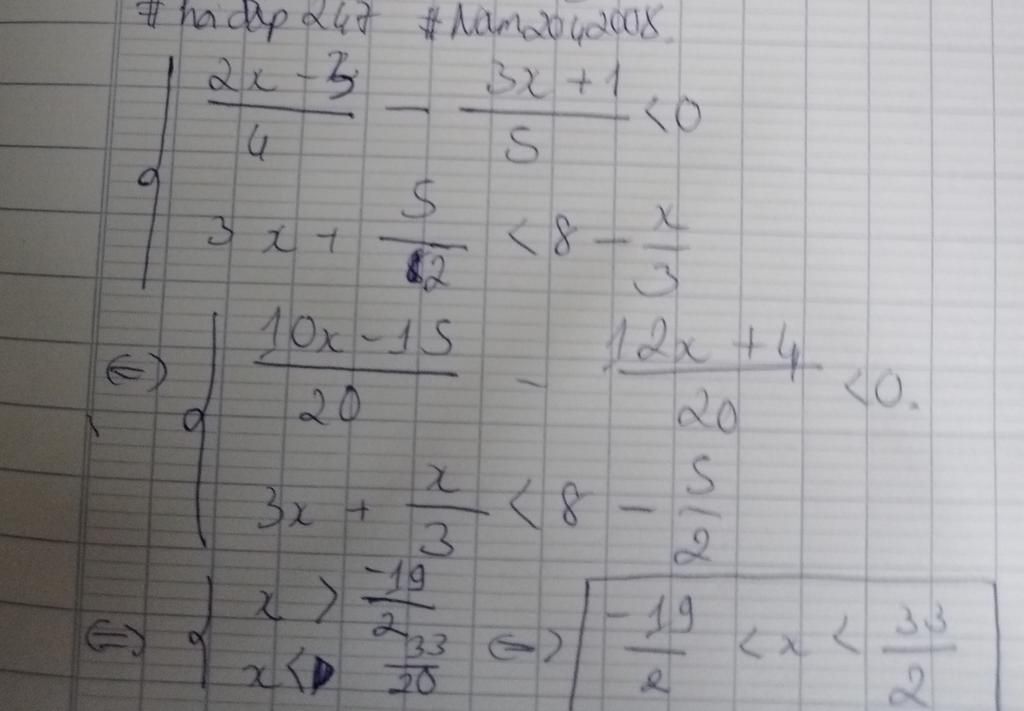 #hoidap247 #Nam2042008.
(2x - 3)/4 - (3x + 1)/5 < 0
3x + 5/2 < 8 - x/3
<=> (10x - 15)/20 - (12x + 4)/20 < 0.
3x + x/3 < 8 - 5/2
<=> x > -19/2
x < 33/20 <=> -19/2 < x < 33/2